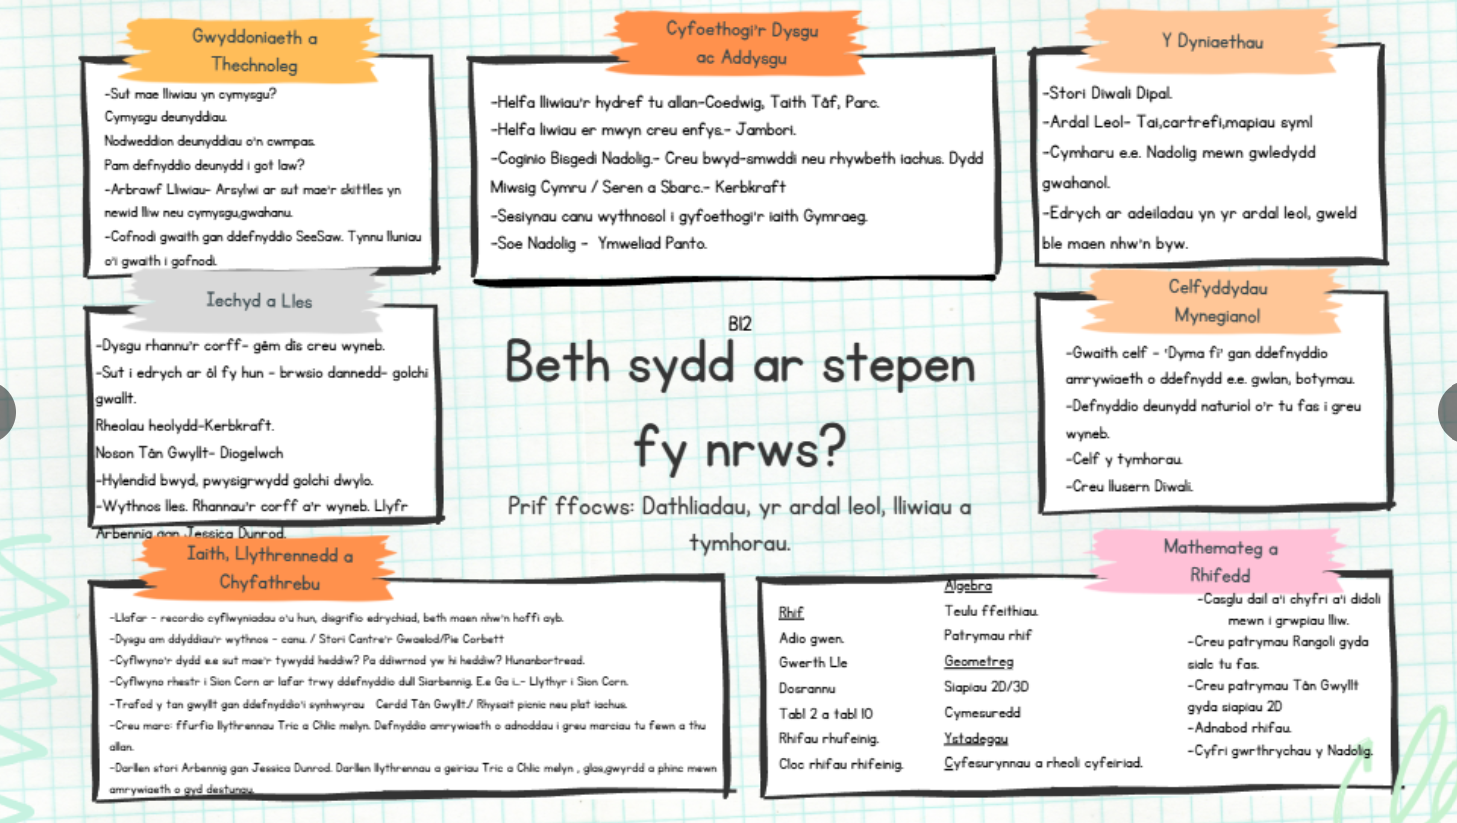 Gwyddoniaeth a
Thechnoleg
-Sut mae lliwiau yn cymysgu?
Cymysgu deunyddiau.
Nodweddion deunyddiau o'n cwmpas.
Pam defnyddio deunydd i got law?
-Arbrawf Lliwiau- Arsylwi ar sut mae'r skittles yn
newid lliw neu cymysgu,gwahanu.
-Cofnodi gwaith gan ddefnyddio SeeSaw. Tynnu lluniau
o'i gwaith i gofnodi.
Cyfoethogi'r Dysgu
ac Addysgu
-Helfa lliwiau'r hydref tu allan-Coedwig, Taith Tâf, Parc.
-Helfa liwiau er mwyn creu enfys.- Jambori.
-Coginio Bisgedi Nadolig.- Creu bwyd-smwddi neu rhywbeth iachus. Dydd
Miwsig Cymru / Seren a Sbarc.- Kerbkraft
-Sesiynau canu wythnosol i gyfoethogi'r iaith Gymraeg.
-Soe Nadolig - Ymweliad Panto.
Y Dyniaethau
-Stori Diwali Dipal.
-Ardal Leol- Tai,cartrefi,mapiau syml
-Cymharu e.e. Nadolig mewn gwledydd
gwahanol.
-Edrych ar adeiladau yn yr ardal leol, gweld
ble maen nhw'n byw.
Iechyd a Lles
-Dysgu rhannu'r corff- gêm dîs creu wyneb.
-Sut i edrych ar ôl fy hun - brwsio dannedd- golchi
gwallt.
Rheolau heolydd-Kerbkraft.
Noson Tân Gwyllt- Diogelwch
-Hylendid bwyd, pwysigrwydd golchi dwylo.
-Wythnos lles. Rhannau'r corff a'r wyneb. Llyfr
Arbennig gan Jessica Dunrod.
Bl2
Beth sydd ar stepen
fy nrws?
Prif ffocws: Dathliadau, yr ardal leol, lliwiau a
tymhorau.
Celfyddydau
Mynegianol
-Gwaith celf - 'Dyma fi' gan ddefnyddio
amrywiaeth o ddefnydd e.e. gwlan, botymau.
-Defnyddio deunydd naturiol o'r tu fas i greu
wyneb.
-Celf y tymhorau.
-Creu llusern Diwali.
Iaith, Llythrennedd a
Chyfathrebu
-Llafar - recordio cyflwyniadau o'u hun, disgrifio edrychiad, beth maen nhw'n hoffi ayb.
-Dysgu am ddyddiau'r wythnos - canu. / Stori Cantre'r Gwaelod/Pie Corbett
-Cyflwyno'r dydd e.e sut mae'r tywydd heddiw? Pa ddiwrnod yw hi heddiw? Hunanbortread.
-Cyflwyno rhestr i Sion Corn ar lafar trwy ddefnyddio dull Siarbennig. E.e Ga i...- Llythyr i Sion Corn.
-Trafod y tan gwyllt gan ddefnyddio'i synhwyrau Cerdd Tân Gwyllt./ Rhysait picnic neu plat iachus.
-Creu marc: ffurfio llythrennau Tric a Chlic melyn. Defnyddio amrywiaeth o adnoddau i greu marciau tu fewn a thu
allan.
-Darllen stori Arbennig gan Jessica Dunrod. Darllen llythrennau a geiriau Tric a Chlic melyn , glas,gwyrdd a phinc mewn
amrywiaeth o gyd destunau.
Mathemateg a
Rhifedd
Rhif
Adio gwen.
Gwerth Lle
Dosrannu
Tabl 2 a tabl 10
Rhifau rhufeinig.
Cloc rhifau rhifeinig.
Algebra
Teulu ffeithiau.
Patrymau rhif
Geometreg
Siapiau 2D/3D
Cymesuredd
Ystadegau
Cyfesurynnau a rheoli cyfeiriad.
-Casglu dail a'i chyfri a'i didoli
mewn i grwpiau lliw.
-Creu patrymau Rangoli gyda
sialc tu fas.
-Creu patrymau Tân Gwyllt
gyda siapiau 2D
-Adnabod rhifau.
-Cyfri gwrthrychau y Nadolig.